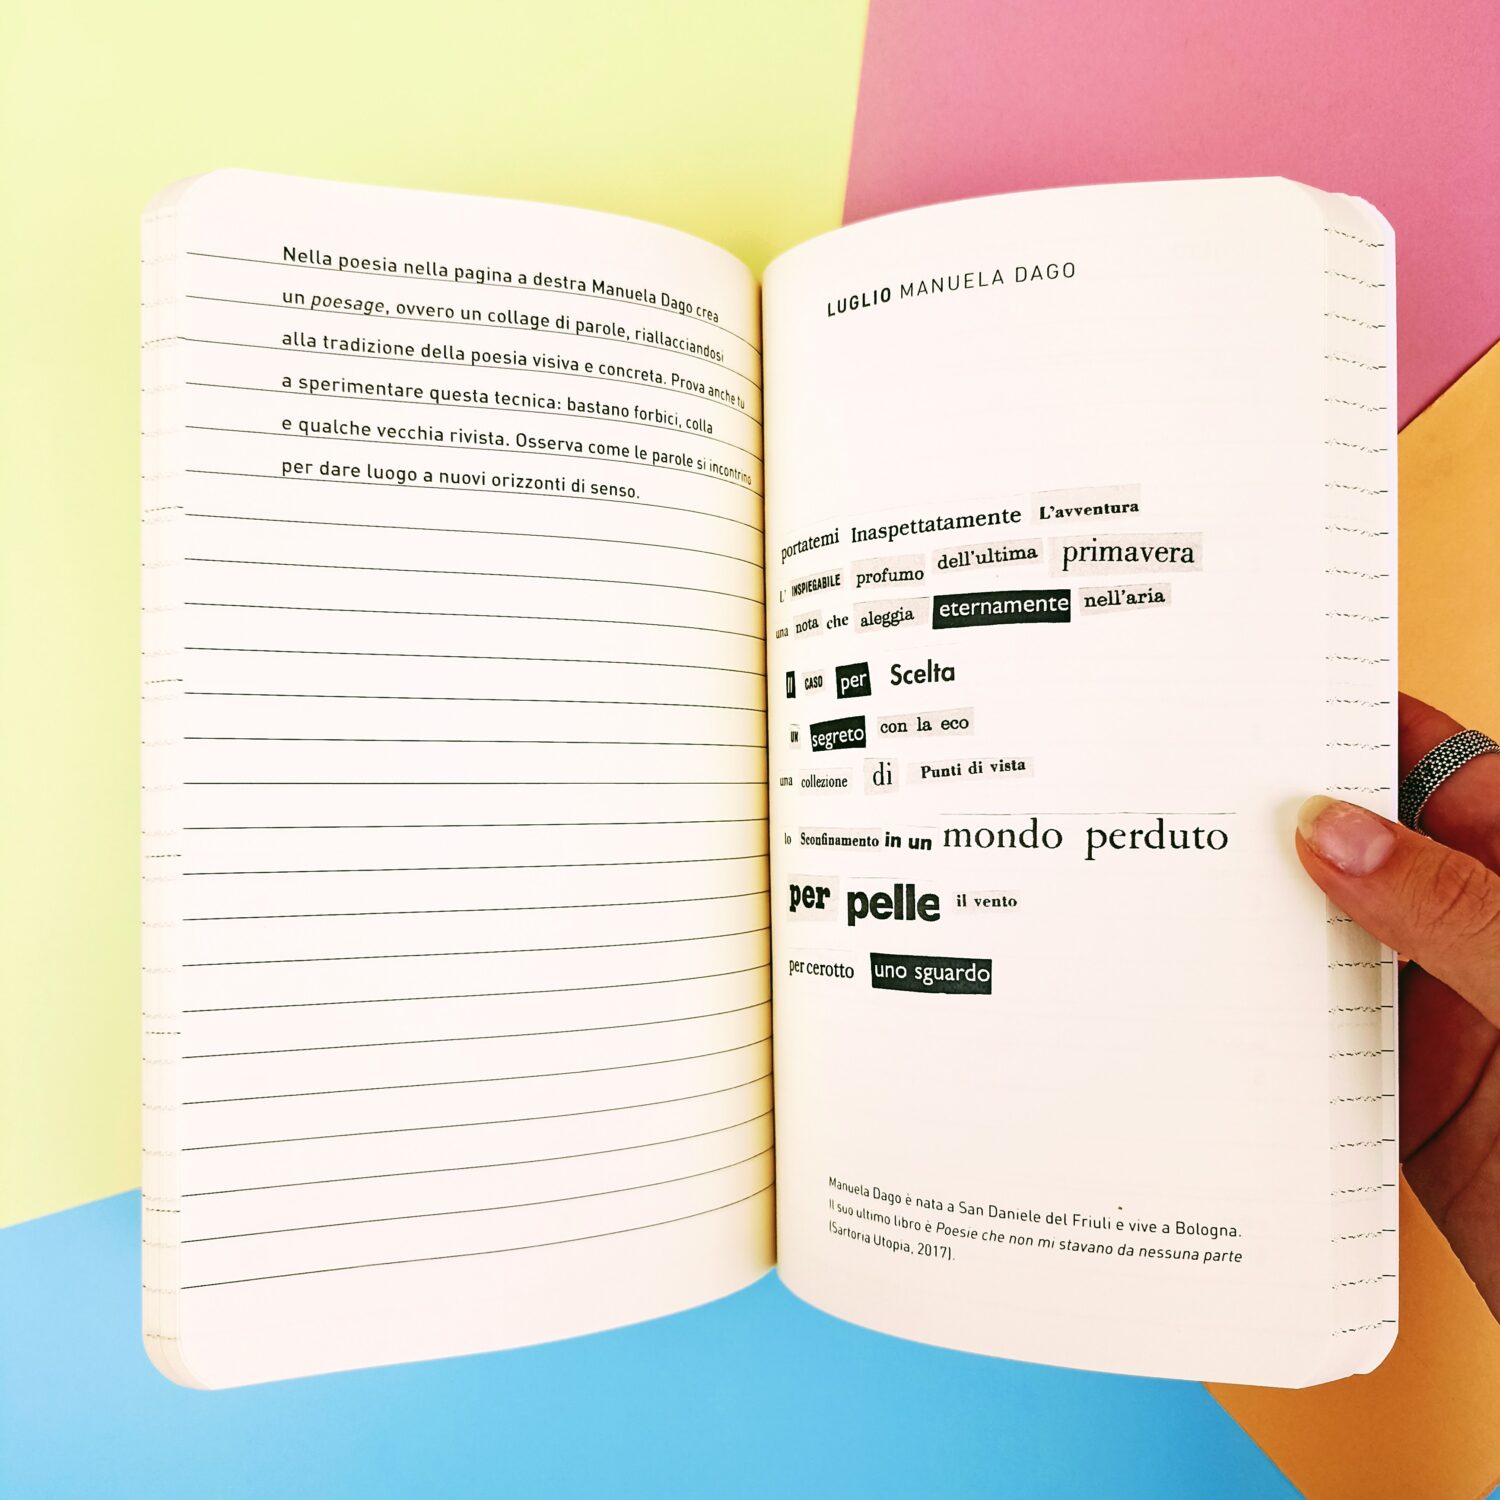 Nella poesia nella pagina a destra Manuela Dago crea
un poesage, ovvero un collage di parole, riallacciandosi
alla tradizione della poesia visiva e concreta. Prova anche tu
a sperimentare questa tecnica: bastano forbici, colla
e qualche vecchia rivista. Osserva come le parole si incontrino
per dare luogo a nuovi orizzonti di senso.
LUGLIO MANUELA DAGO
portatemi Inaspettatamente L'avventura
L' INSPIEGABILE profumo dell'ultima primavera
una nota che aleggia eternamente nell'aria
Il CASO per Scelta
UN segreto con la eco
una collezione di Punti di vista
lo Sconfinamento in un mondo perduto
per pelle il vento
per cerotto uno sguardo
Manuela Dago è nata a San Daniele del Friuli e vive a Bologna.
Il suo ultimo libro è Poesie che non mi stavano da nessuna parte
(Sartoria Utopia, 2017).